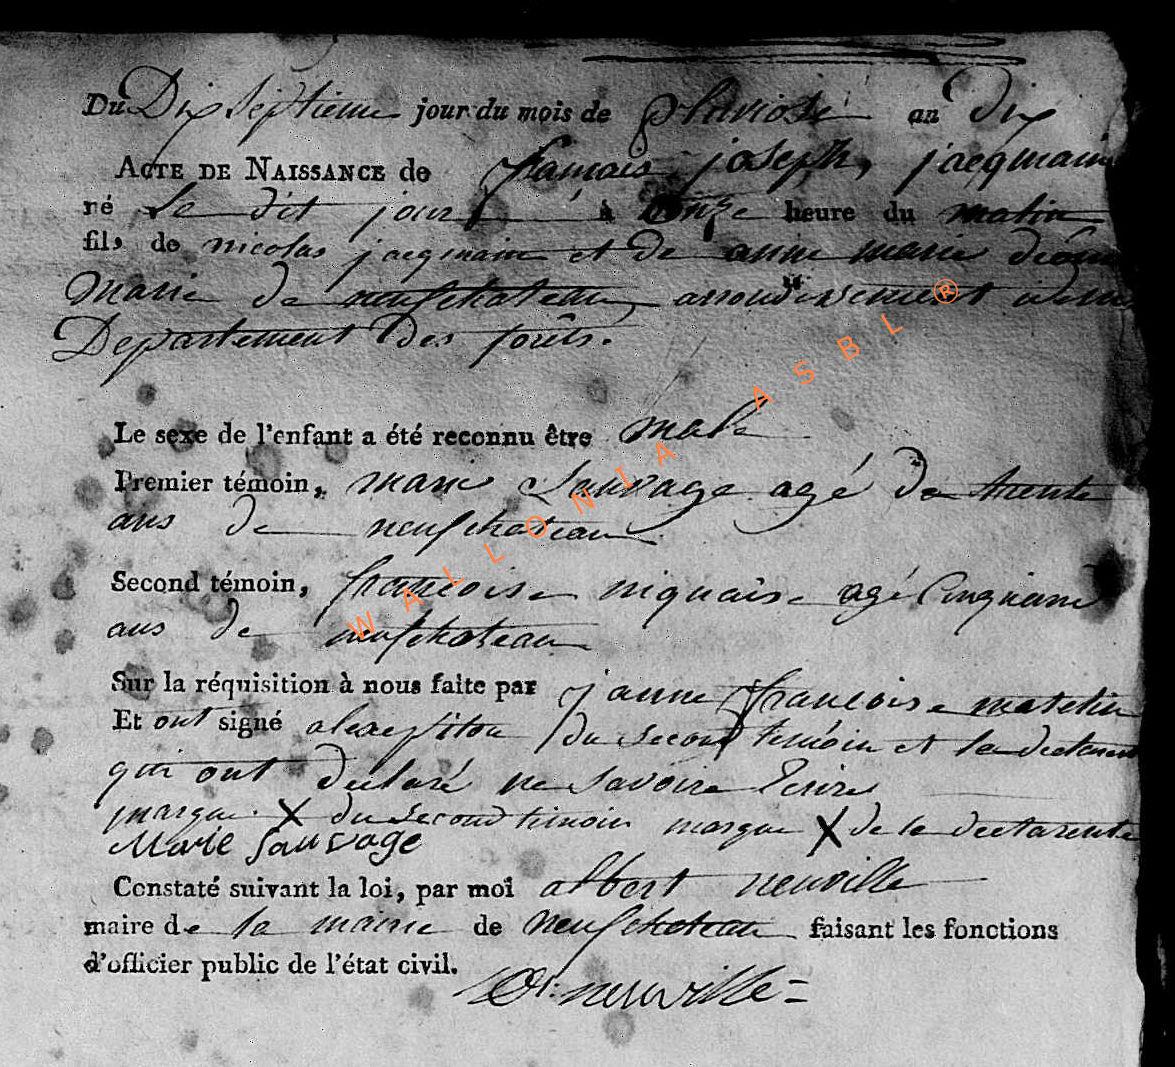 Du Dix Septieme jour du mois de pluviose an dix
ACTE DE NAISSANCE de françois joseph, jacqmain
né Le dit jour à onze heure du matin
fils de nicolas jacqmain et de anne marie
Marie de neufchateau arrondissement idem
Departement des forêts.
Le sexe de l'enfant a été reconnu être male
Premier témoin, marie Sauvage agé de trente
ans de neufchateau
Second témoin, francoise niquaise agé Cinquante
ans de neufchateau
Sur la réquisition à nous faite par janne francoise matelin
Et ont signé du second temoin et la declarente
qui ont declaré ne savoire Ecrire
marque X du Second temoin marque X de la declarente
Marie Sauvage
Constaté suivant la loi, par moi albert neuville
maire de la mairie de neufchateau faisant les fonctions
d'officier public de l'état civil.
neuville
WALLONIA ASBL ®